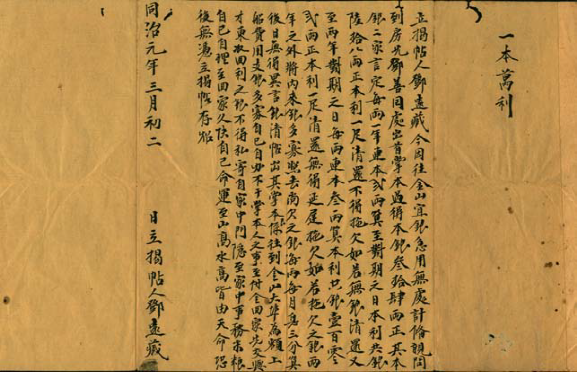 一本萬利
立揭帖人鄧遠藏今因往金山宜銀急用無處計備親問
到房兄鄧善同處出首掌本過得本銀叁拾肆兩正其本
銀二家言定每兩一年連本弍兩算至對期之日本利共銀
陸拾八兩正本利一足清還不得拖欠如若無銀清還又
至兩年對期之日每兩連本叁兩算本利共銀壹百零
弍兩正本利一足清還無得延遲拖欠如若拖欠之銀兩
年之外將內來銀多寡照去尚欠之銀每兩每月息三分算
後日無得異言銀清帖出其掌本係往到金山大埠為頼上
船費用支銀多寡自己自办不干掌本人之事至付金回家先交與
才東收回利之銀不得私寄自家中門隱至家中事務米粮
自己自理至回家久快自己命運至山高水高皆由天命恐
後無憑立揭帖存照
同治元年三月初二 日立揭帖人鄧遠藏